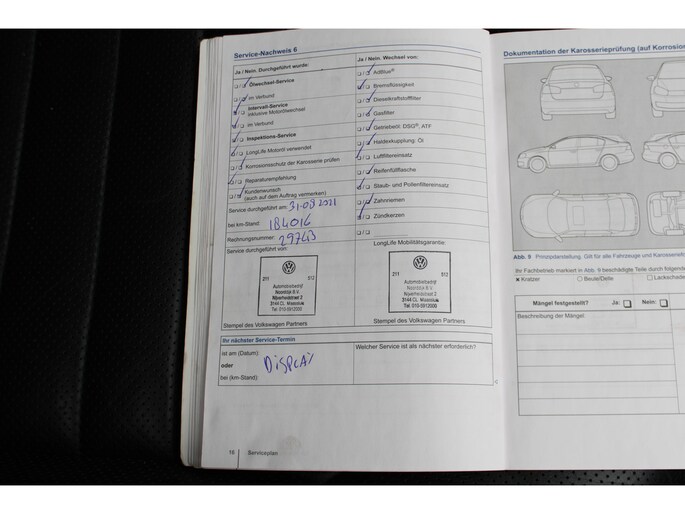 Service-Nachweis 6
Ja / Nein. Durchgeführt wurde:
Ölwechsel-Service
im Verbund
Intervall-Service
inklusive Motorölwechsel
im Verbund
Inspektions-Service
LongLife Motoröl verwendet
Korrosionsschutz der Karosserie prüfen
Reparaturempfehlung
Kundenwunsch
(auch auf dem Auftrag vermerken)
Service durchgeführt am: 31-08 2021
bei km-Stand: 184016
Rechnungsnummer:
Service durchgeführt von:
211 512
Automobielbedrijf
3144 CL Maassluis
Tel. 010-5912000
Stempel des Volkswagen Partners
Ja / Nein. Wechsel von:
AdBlue®
Bremsflüssigkeit
Dieselkraftstofffilter
Gasfilter
Getriebeöl: DSG®, ATF
Haldexkupplung: Öl
Luftfiltereinsatz
Reifenfüllflasche
Staub- und Pollenfiltereinsatz
Zahnriemen
Zündkerzen
LongLife Mobilitätsgarantie:
211 512
Automobielbedrijf
3144 CL Maassluis
Tel. 010-5912000
Stempel des Volkswagen Partners
Ihr nächster Service-Termin
ist am (Datum):
oder
bei (km-Stand):
DISPLAY
Welcher Service ist als nächster erforderlich?
16 Serviceplan
Dokumentation der Karosserieprüfung (auf Korrosion
Abb. 9 Prinzipdarstellung. Gilt für alle Fahrzeuge und Karosseriefor
Ihr Fachbetrieb markiert in Abb. 9 beschädigte Teile durch folgende
Kratzer Beule/Delle Lackschade
Mängel festgestellt? Ja: Nein:
Beschreibung der Mängel: